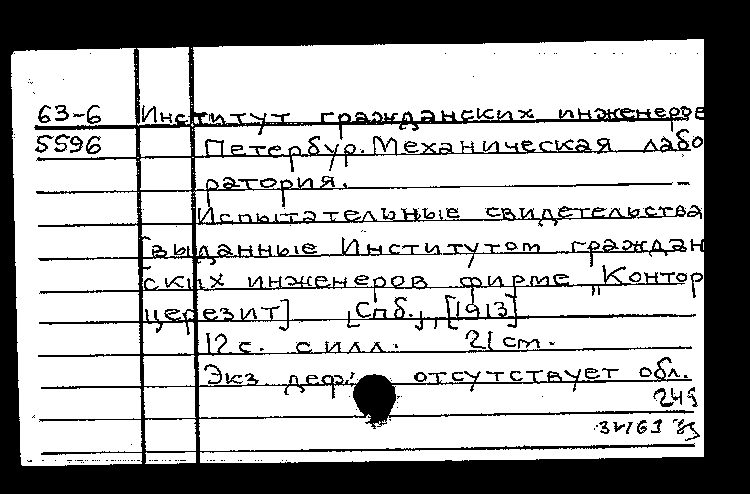 63-6 Институт гражданских инженеров
5596 Петербур. Механическая лабо
ратория.
Испытательные свидетельства
[выданные Институтом граждан
ских инженеров фирме „Контор
церезит] [Спб.], [1913]
12 с. с илл. 21 cm.
Экз деф. отсутствует обл.
249